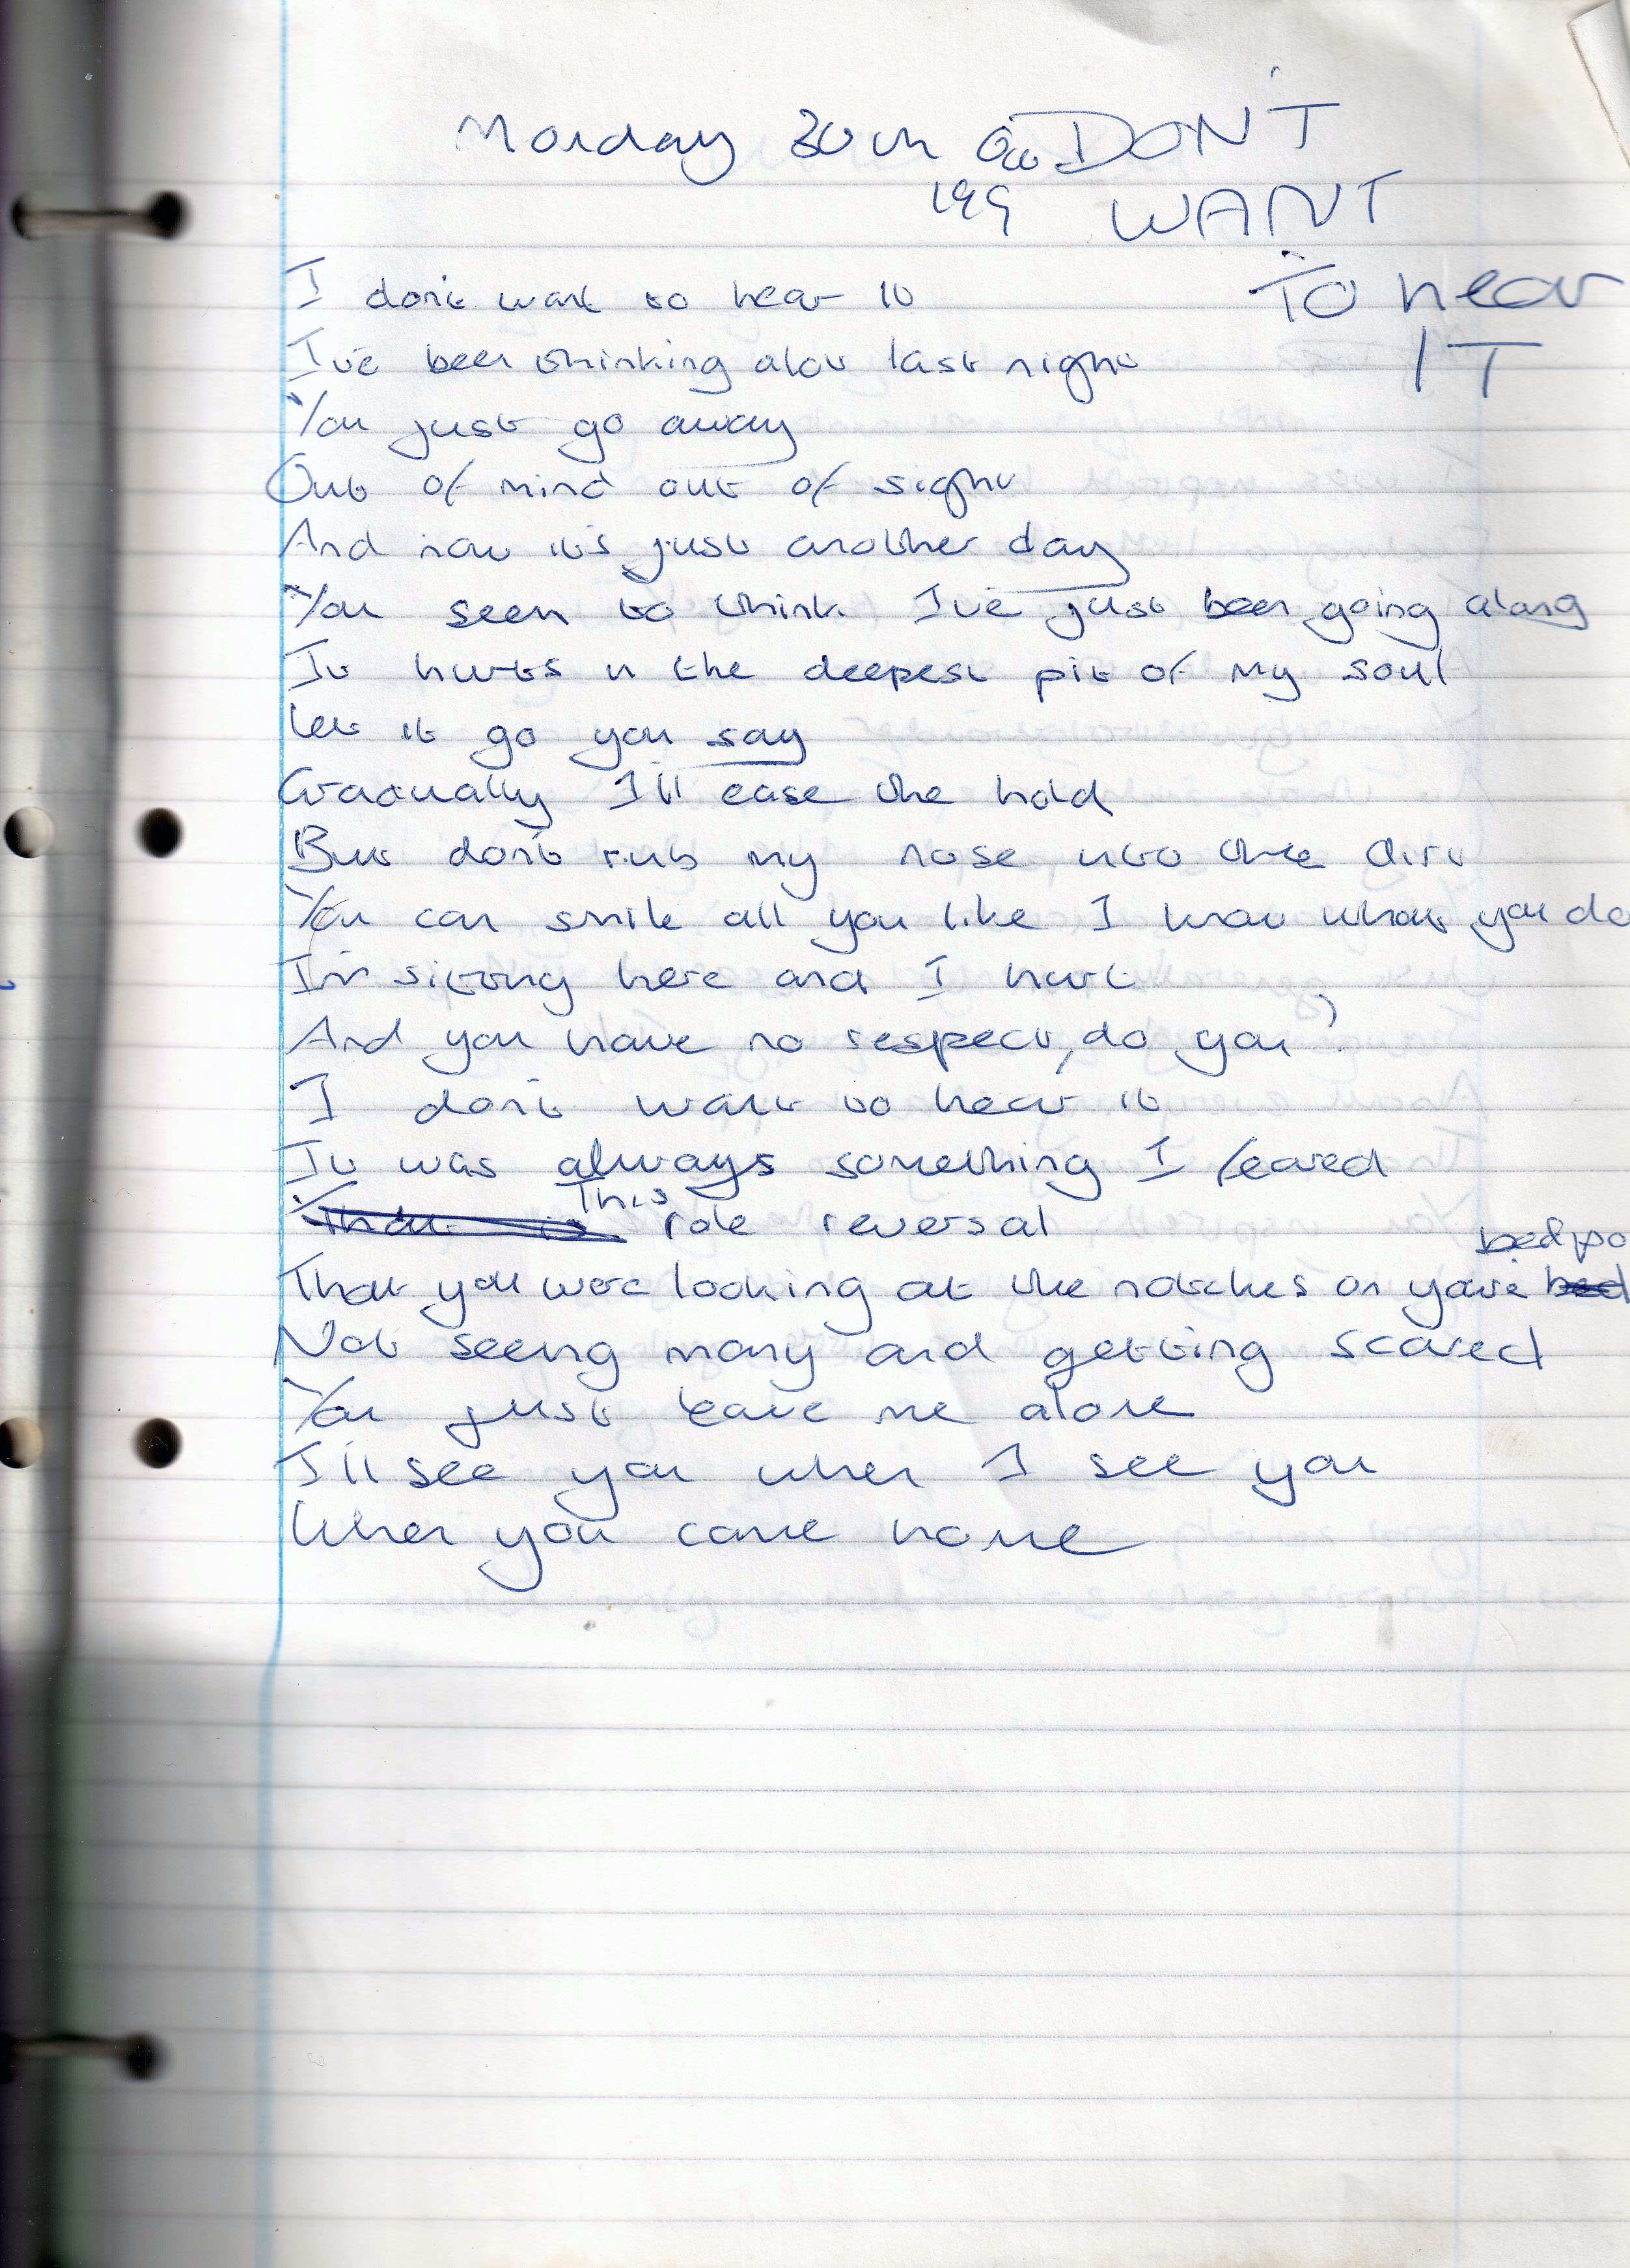 Monday 30th Oct I DON'T
199 WANT
To hear
IT
I don't want to hear it
I've been thinking alot last night
You just go away
Out of mind out of sight
And now it's just another day
You seem to think I've just been going along
It hurts in the deepest pit of my soul
Let it go you say
Gradually I'll ease the hold
But don't rub my nose into the dirt
You can smile all you like I know what you do
I'm sitting here and I hurt
And you have no respect, do you?
I don't want to hear it
It was always something I feared
This
That is role reversal
bedpo
That you were looking at the notches on your bed
Not seeing many and getting scared
You just leave me alone
I'll see you when I see you
When you come home